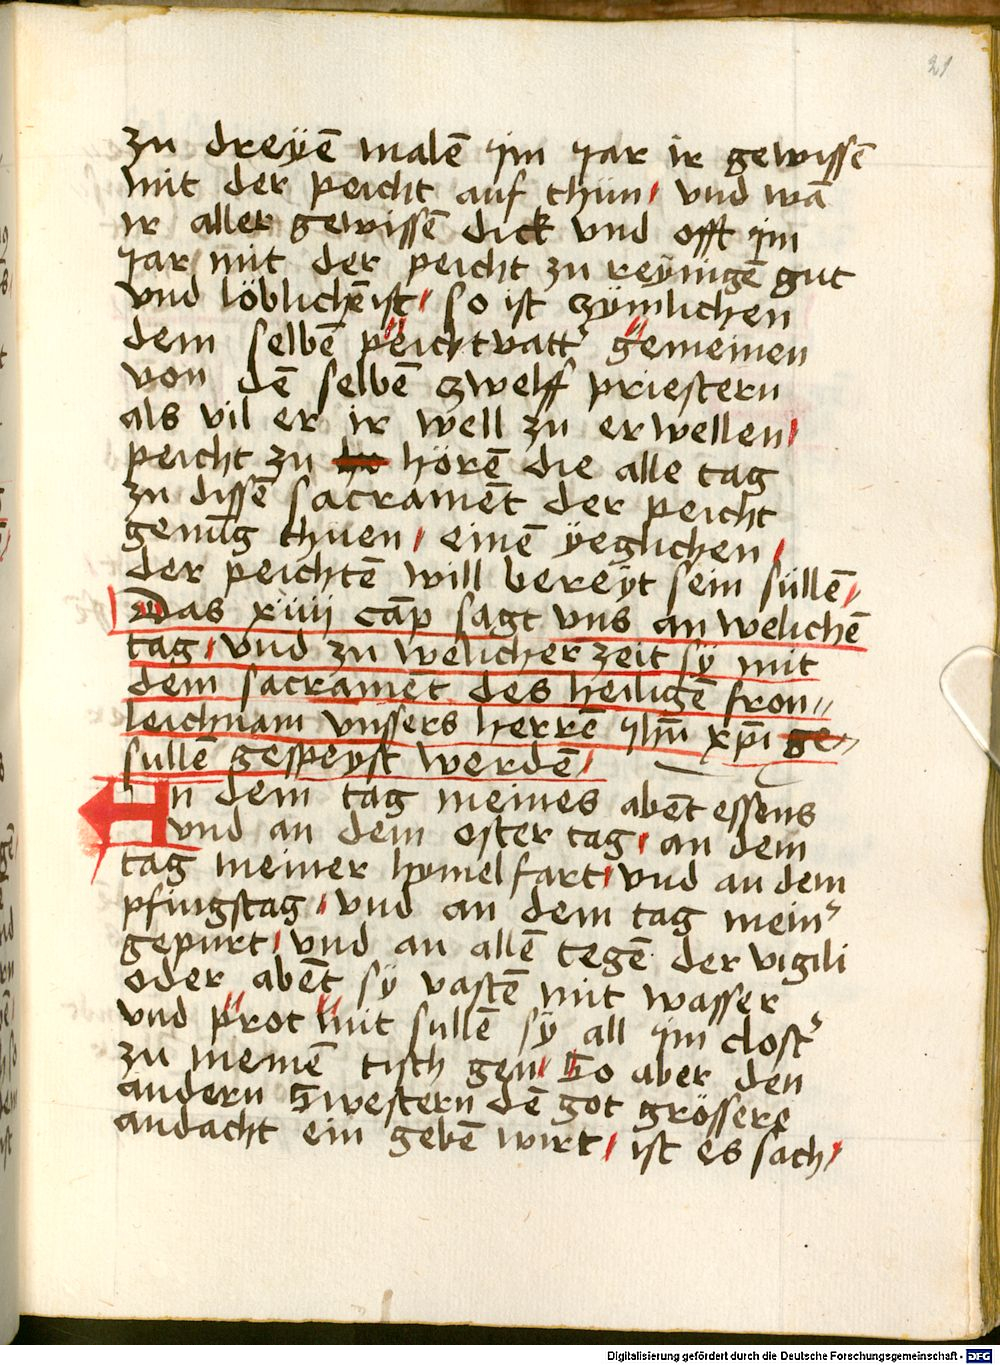 21
zu dreÿē malē ym yar ir gewissē
mit der peicht auf thün / vnd wā
ir aller gewissē dick vnd offt ym
yar mit der peicht zu reÿnigē gut
vnd löblichē ist / so ist zymlichen
dem selbē peichtvatt' gemeinen
von dē selbē zwelff priestern
als vil er ir well zu erwellen /
peicht zu hörē die alle tag
zu dissē sacramēt der peicht
genūg thuen / einē ÿeglichen /
der peichtē will bereÿt sein süllē /
Das xiiij cāp sagt vns an welichē
tag / vnd zu welicher zeit sÿ mit
dem sacramēt des heiligē fron〃
leichnam vnsers herrē yhū xp̄i ge〃
sullē gespeyst werdē /
An dem tag meines abēt essens
vnd an dem oster tag / an dem
tag meiner hymelfart / vnd an dem
pfingstag / vnd an dem tag mein'
gepurt / vnd an allē tegē der vigili
oder abēt sÿ vastē mit wasser
vnd prot mit sullē sÿ all ym clost'
zu meinē tisch gen / So aber den
andern Swestern dē got grössere
andacht ein gebē wirt / ist es sach /
Digitalisierung gefördert durch die Deutsche Forschungsgemeinschaft - DFG